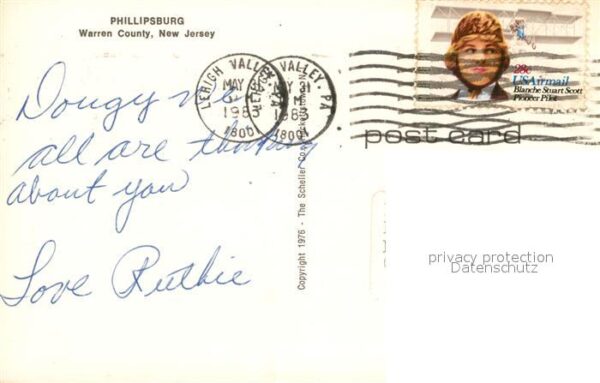 PHILLIPSBURG
Warren County, New Jersey
Dougy we
all are thinking
about you
Love Ruthie
LEHIGH VALLEY PA
MAY
1983
1800
LEHIGH VALLEY PA
MAY
1983
1800
28c
USAirmail
Blanche Stuart Scott
Pioneer Pilot
post card
Copyright 1976 - The Scheller Co.
privacy protection
Datenschutz